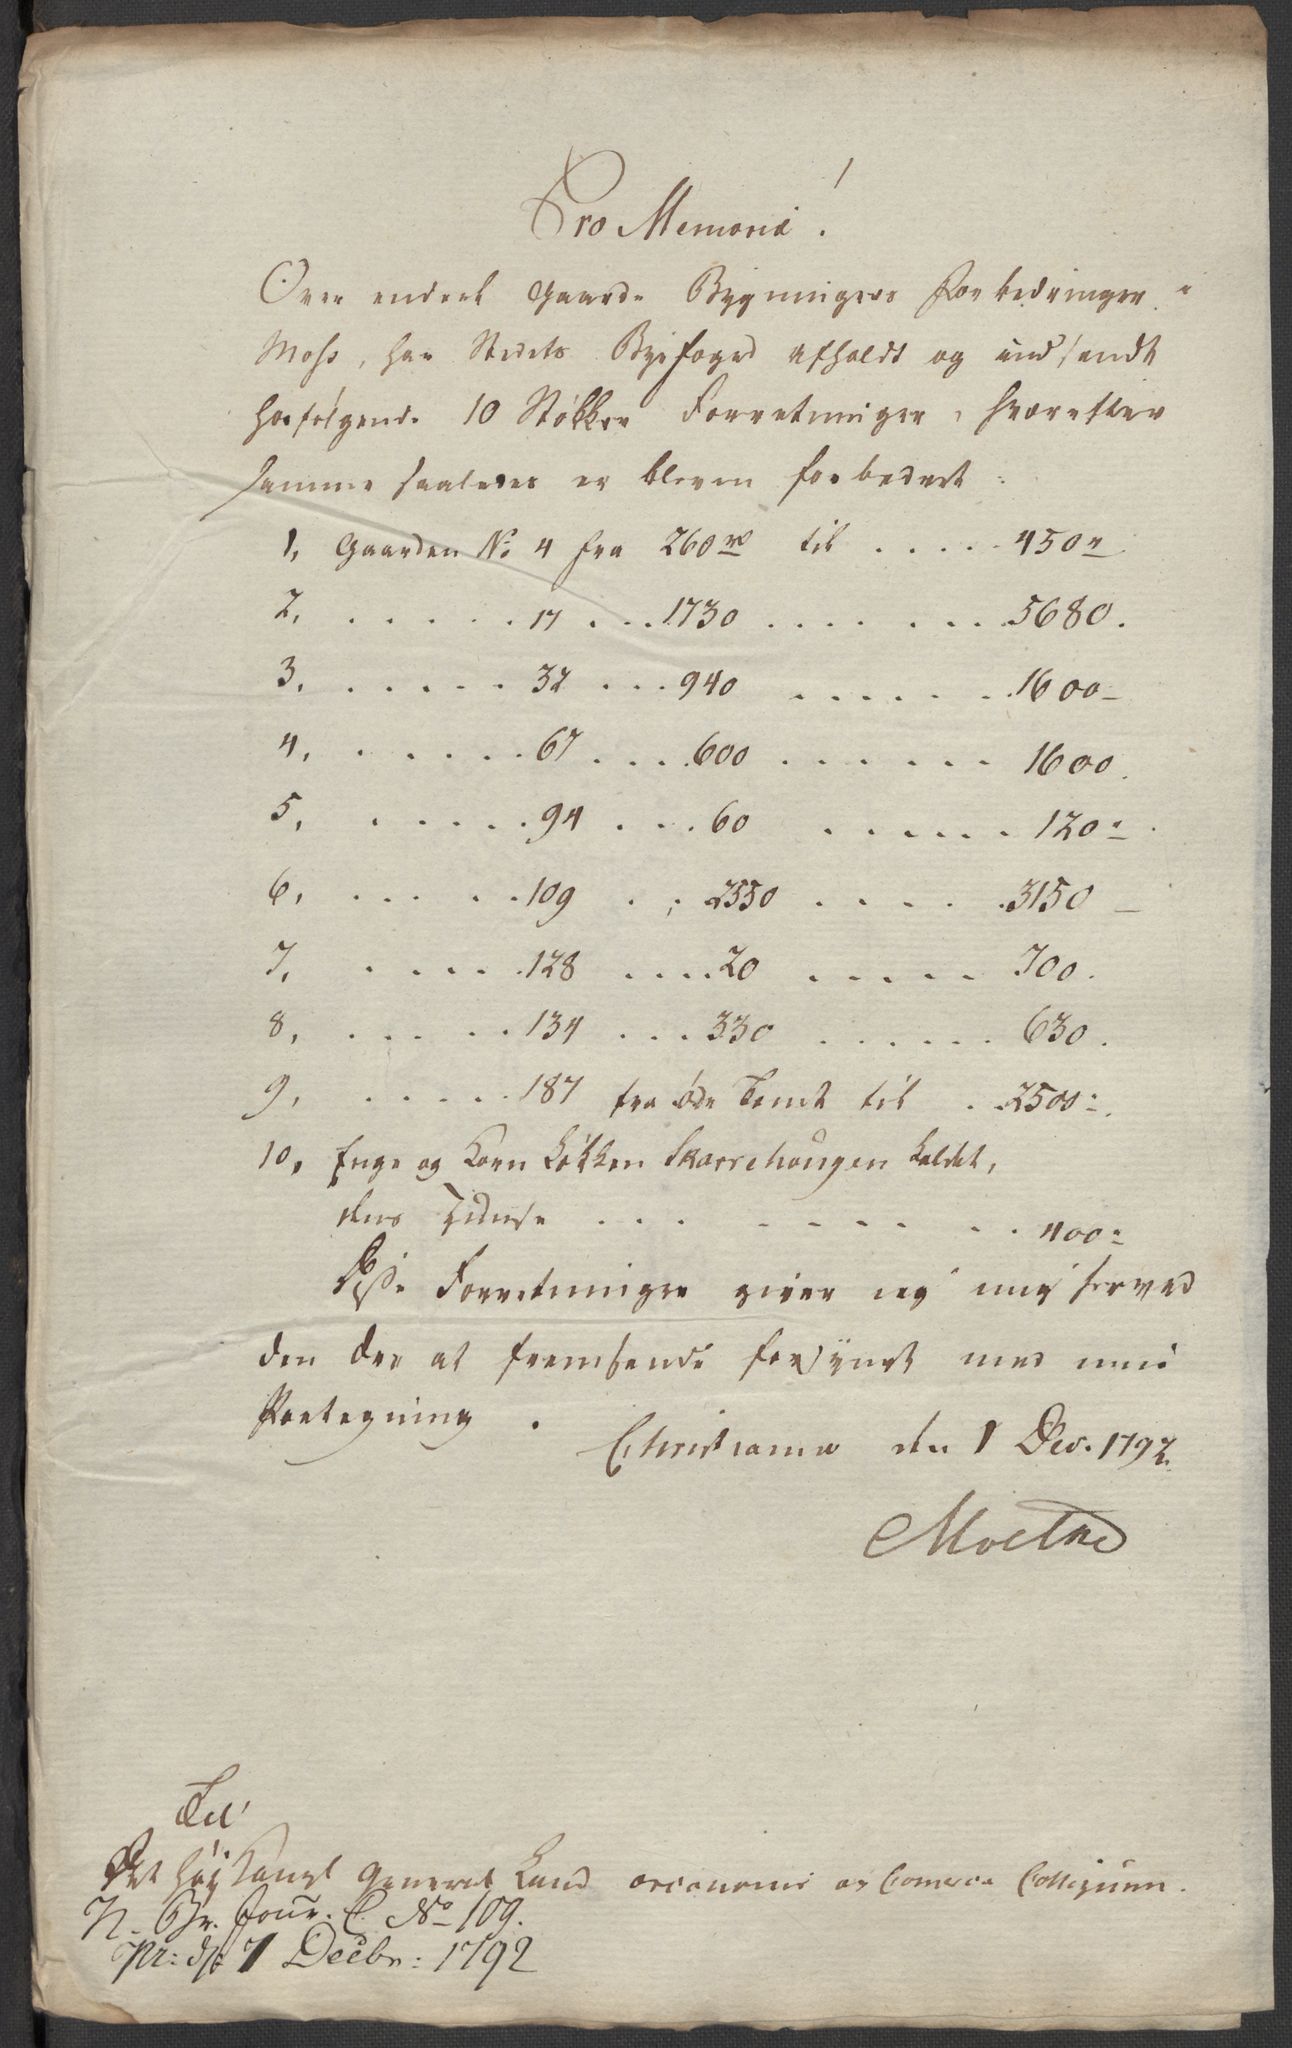 Pro Memoria!
Over endeel Gaarde Bygningers Forbedringer i
Moss, har Stedets Byefoged afholdt og indsendt
hosfølgende 10 Stökker Forretninger, hvorefter
samme saaledes er bleven forbedret:
1, Gaarden No 4 fra 260 rd til . . . . . 450 r
2, . . . . . . 17 . . . 1730 . . . . . . . . 5680.
3, . . . . . . 32 . . . 940 . . . . . . . 1600 -
4, . . . . . . 67 . . . . 600 . . . . . . . 1600.
5, . . . . . . 94 . . . . 60 . . . . . . 120 "
6, . . . . . . 109 . . 2550 . . . . . 3150 -
7, . . . . . 128 . . . . 20 . . . . . 700.
8, . . . . . . 134 . . . 330 . . . . . . 630.
9, . . . . . . 187 fra øde Tomt til . . 2500 "
10, Enge og Korn Løkken Skarrehougen kaldet,
dens Huuse . . . . . . . . . . 400 "
Disse Forretninger giver jeg mig herved
den Ære at fremsende forsÿnet med min
Paategning.
Christiania den 1 Dec. 1792.
Moltke
Til
Det høj Kongl General Land oeconomie og Comerce Collegium.
N. Br. Jour. C. No 109.
Pr: d: 7 Decbr: 1792